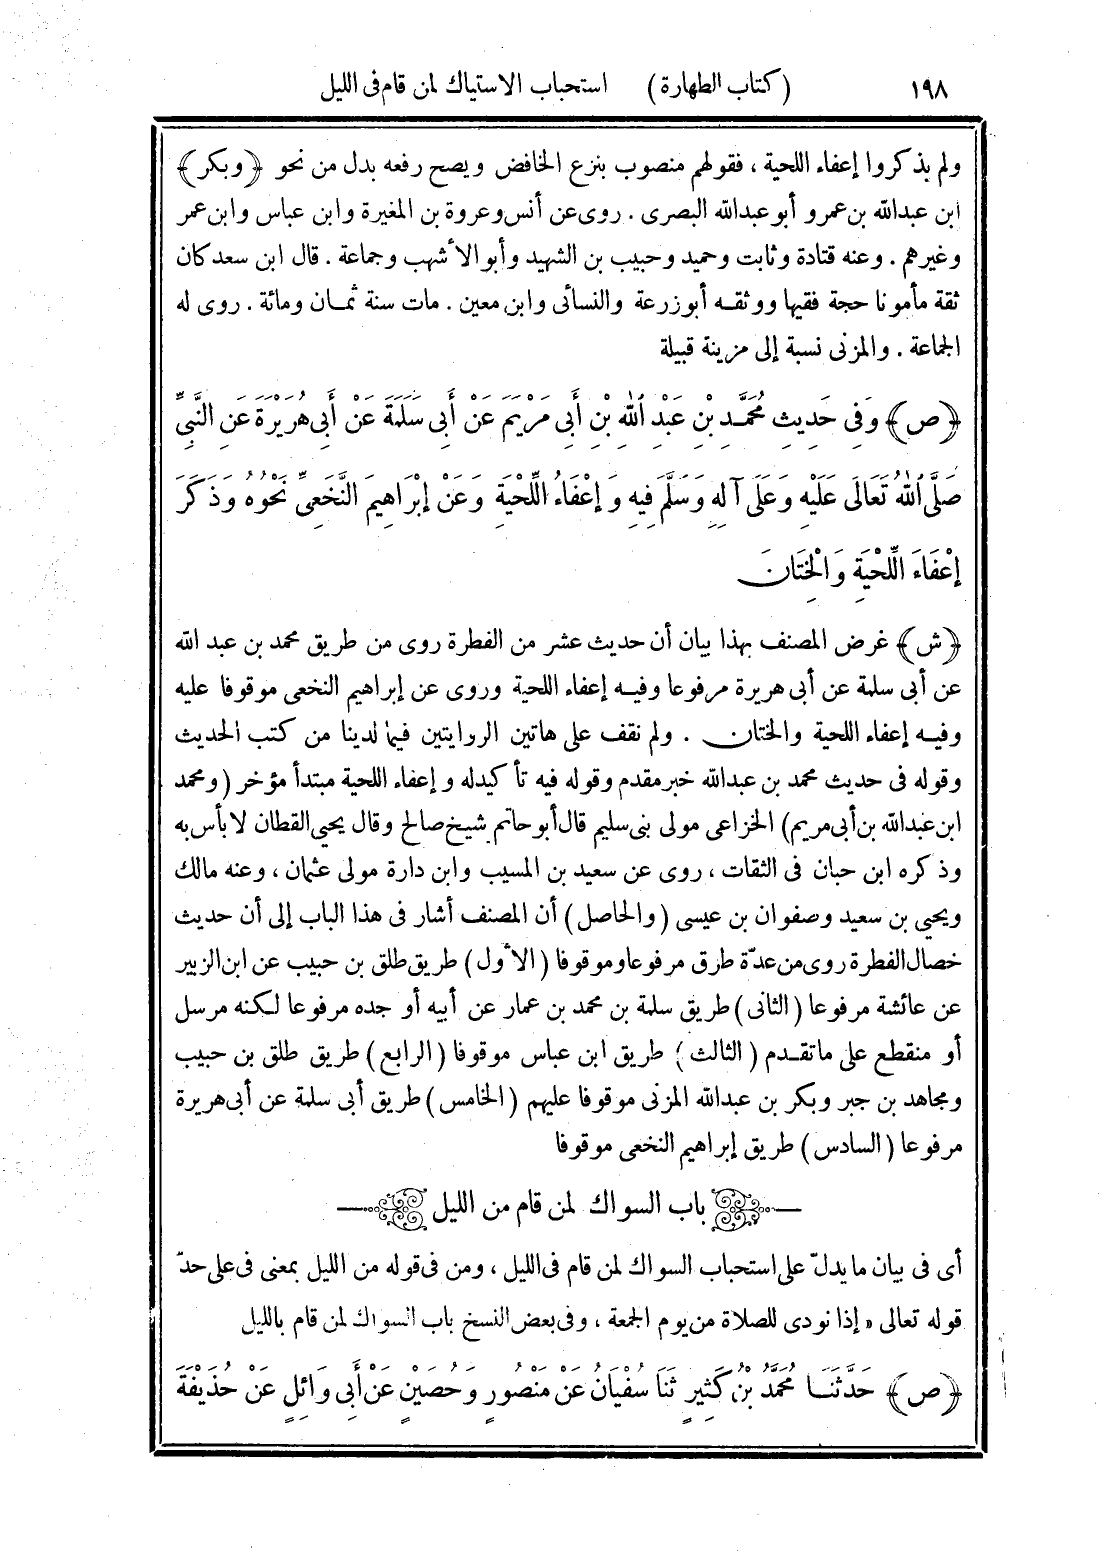 ١٩٨ (كتاب الطهارة) استحباب الاستياك لمن قام فى الليل
ولم يذكروا إعفاء اللحية ، فقولهم منصوب بنزع الخافض ويصح رفعه بدل من نحو ﴿وبكر﴾
ابن عبدالله بن عمرو أبو عبدالله البصرى . روى عن أنس وعروة بن المغيرة وابن عباس وابن عمر
وغيرهم . وعنه قتادة وثابت وحميد وحبيب بن الشهيد وأبو الأشهب وجماعة . قال ابن سعد كان
ثقة مأمونا حجة فقيها ووثقه أبوزرعة والنسائى وابن معين . مات سنة ثمان ومائة . روى له
الجماعة . والمزنى نسبة إلى مزينة قبيلة
﴿ص﴾ وَفِى حَدِيثِ مُحَمَّدِ بْنِ عَبْدِ اللهِ بْنِ أَبِى مَرْيَمَ عَنْ أَبِى سَلَمَةَ عَنْ أَبِى هُرَيْرَةَ عَنِ النَّبِىِّ
صَلَّى اللهُ تَعَالَى عَلَيْهِ وَعَلَى آلِهِ وَسَلَّمَ فِيهِ وَإِعْفَاءُ اللِّحْيَةِ وَعَنْ إِبْرَاهِيمَ النَّخَعِىِّ نَحْوُهُ وَذَكَرَ
إِعْفَاءَ اللِّحْيَةِ وَالْخِتَانَ
﴿ش﴾ غرض المصنف بهذا بيان أن حديث عشر من الفطرة روى من طريق محمد بن عبد الله
عن أبى سلمة عن أبى هريرة مرفوعا وفيه إعفاء اللحية وروى عن إبراهيم النخعى موقوفا عليه
وفيه إعفاء اللحية والختان . ولم نقف على هاتين الروايتين فيما لدينا من كتب الحديث
وقوله فى حديث محمد بن عبدالله خبر مقدم وقوله فيه تأكيد له وإعفاء اللحية مبتدأ مؤخر (ومحمد
ابن عبدالله بن أبى مريم) الخزاعى مولى بنى سليم قال أبو حاتم شيخ صالح وقال يحيى القطان لا بأس به
وذكره ابن حبان فى الثقات ، روى عن سعيد بن المسيب وابن دارة مولى عثمان ، وعنه مالك
ويحيى بن سعيد وصفوان بن عيسى (والحاصل) أن المصنف أشار فى هذا الباب إلى أن حديث
خصال الفطرة روى من عدّة طرق مرفوعا وموقوفا (الأول) طريق طلق بن حبيب عن ابن الزبير
عن عائشة مرفوعا (الثانى) طريق سلمة بن محمد بن عمار عن أبيه أو جده مرفوعا لكنه مرسل
أو منقطع على ماتقدم (الثالث) طريق ابن عباس موقوفا (الرابع) طريق طلق بن حبيب
ومجاهد بن جبر وبكر بن عبدالله المزنى موقوفا عليهم (الخامس) طريق أبى سلمة عن أبى هريرة
مرفوعا (السادس) طريق إبراهيم النخعى موقوفا
باب السواك لمن قام من الليل
أى فى بيان ما يدلّ على استحباب السواك لمن قام فى الليل ، ومن فى قوله من الليل بمعنى فى على حدّ
قوله تعالى « إذا نودى للصلاة من يوم الجمعة ، وفى بعض النسخ باب السواك لمن قام بالليل
﴿ص﴾ حَدَّثَنَا مُحَمَّدُ بْنُ كَثِيرٍ ثَنَا سُفْيَانُ عَنْ مَنْصُورٍ وَحُصَيْنٍ عَنْ أَبِى وَائِلٍ عَنْ حُذَيْفَةَ